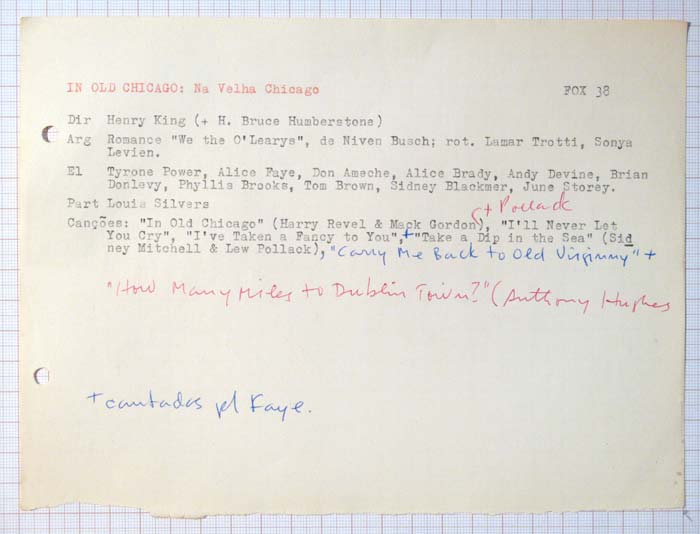 IN OLD CHICAGO: Na Velha Chicago FOX 38
Dir Henry King (+ H. Bruce Humberstone)
Arg Romance "We the O'Learys", de Niven Busch; rot. Lamar Trotti, Sonya
Levien.
El Tyrone Power, Alice Faye, Don Ameche, Alice Brady, Andy Devine, Brian
Donlevy, Phyllis Brooks, Tom Brown, Sidney Blackmer, June Storey.
Part Louis Silvers
+ Pollack
Canções: "In Old Chicago" (Harry Revel & Mack Gordon), "I'll Never Let
You Cry", "I've Taken a Fancy to You",+ "Take a Dip in the Sea" (Sid
ney Mitchell & Lew Pollack), "Carry Me Back to Old Virginny" +
"How Many Miles to Dublin Town?" (Anthony Hughes
+ cantadas p/ Faye.